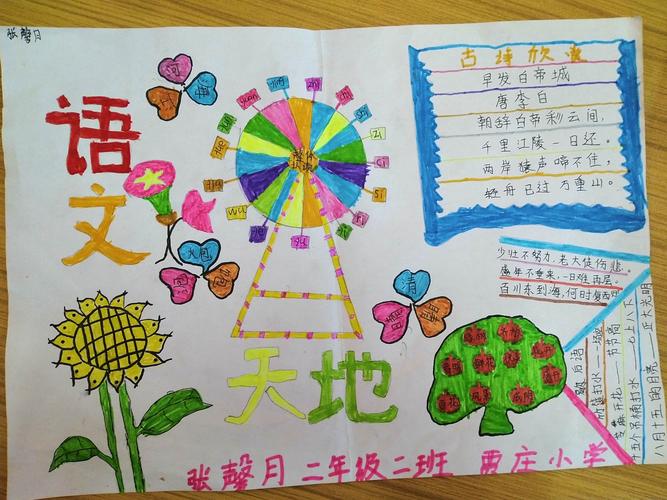 张馨月
语文
天地
河
江
海
zhi
chi
shi
zi
ci
si
yuan
整体认读
古诗欣赏
早发白帝城
唐李白
朝辞白帝彩云间，
千里江陵一日还。
两岸猿声啼不住，
轻舟已过万重山。
少壮不努力，老大徒伤悲。
盛年不重来，一日难再晨。
百川东到海，何时复西归
清
晴
歇后语
竹篮打水——一场空
芝麻开花——节节高
十五个吊桶打水——七上八下
八月十五的月亮——正大光明
张馨月 二年级二班 贾庄小学